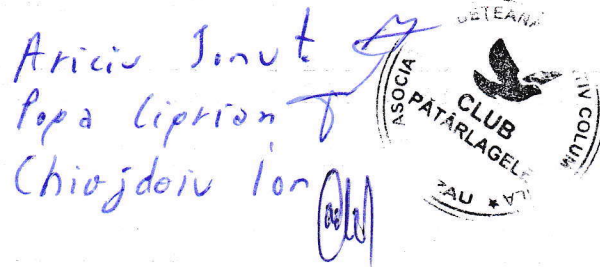 Ariciu Ionut
Popa Ciprian
Chiojdoiu Ion
ASOCIA
CLUB
PĂTÂRLAGELE